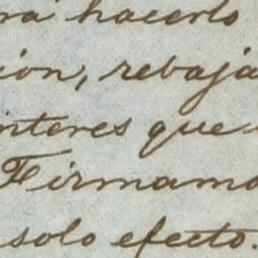 ra hacerlo
ion, rebaja
interes que
Firmamo
solo efecto.